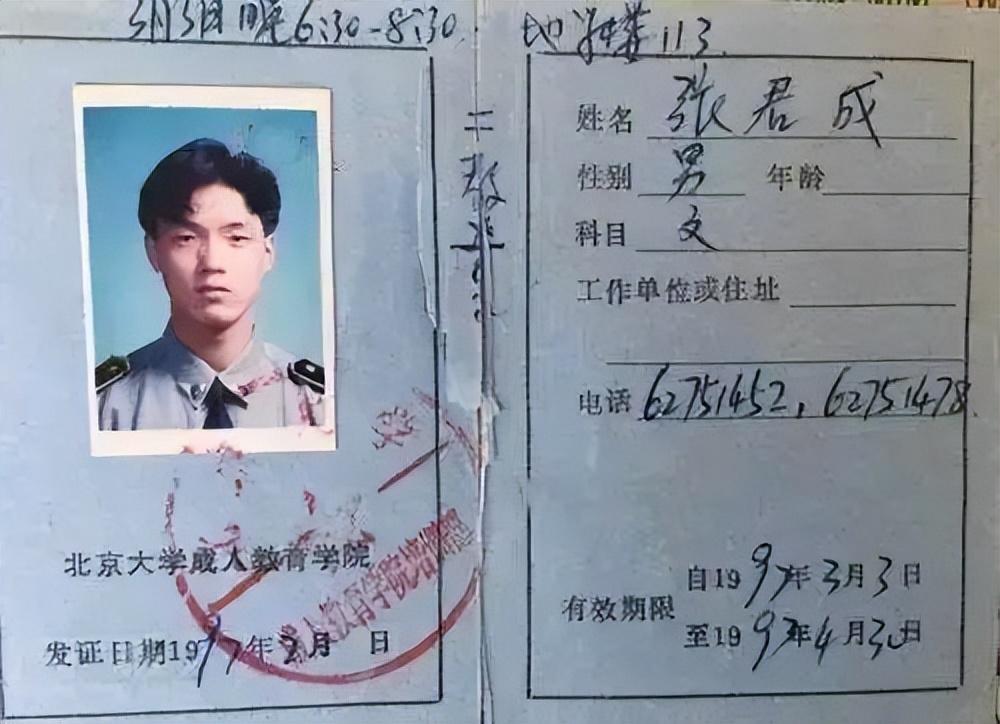 3月3日晚6:30-8:30. 地学楼113
北京大学成人教育学院
发证日期1997年2月 日
二教
姓名 张君成
性别 男 年龄
科目 文
工作单位或住址
电话 62751452, 62751478.
有效期限
自1997年3月3日
至1997年4月30日
成人教育学院培训